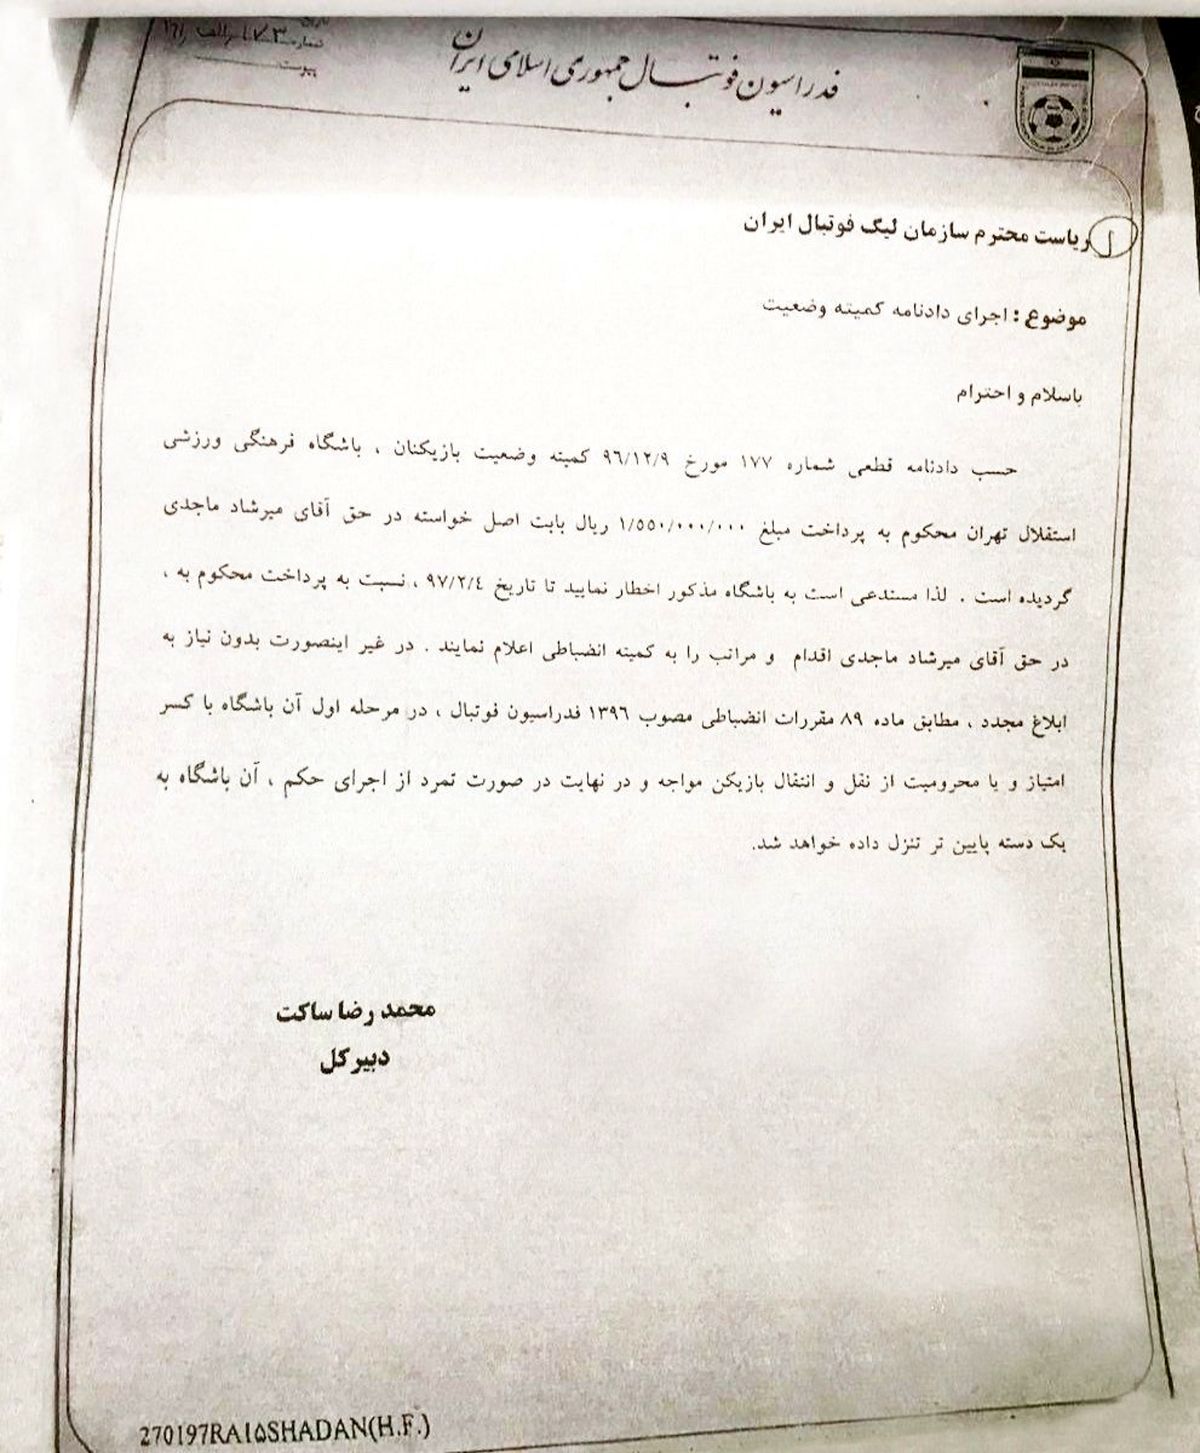 فدراسیون فوتبال جمهوری اسلامی ایران
تاریخ
شماره
پیوست
ریاست محترم سازمان لیگ فوتبال ایران
موضوع : اجرای دادنامه کمیته وضعیت
باسلام و احترام
حسب دادنامه قطعی شماره ۱۷۷ مورخ ۹۶/۱۲/۹ کمیته وضعیت بازیکنان ، باشگاه فرهنگی ورزشی
استقلال تهران محکوم به پرداخت مبلغ ۱/۵۵۰/۰۰۰/۰۰۰ ریال بابت اصل خواسته در حق آقای میرشاد ماجدی
گردیده است . لذا مستدعی است به باشگاه مذکور اخطار نمایید تا تاریخ ۹۷/۲/٤ ، نسبت به پرداخت محکوم به ،
در حق آقای میرشاد ماجدی اقدام و مراتب را به کمیته انضباطی اعلام نمایند . در غیر اینصورت بدون نیاز به
ابلاغ مجدد ، مطابق ماده ۸۹ مقررات انضباطی مصوب ۱۳۹٦ فدراسیون فوتبال ، در مرحله اول آن باشگاه با کسر
امتیاز و یا محرومیت از نقل و انتقال بازیکن مواجه و در نهایت در صورت تمرد از اجرای حکم ، آن باشگاه به
یک دسته پایین تر تنزل داده خواهد شد.
محمد رضا ساکت
دبیرکل
270197RA۱۵SHADAN(H.F.)